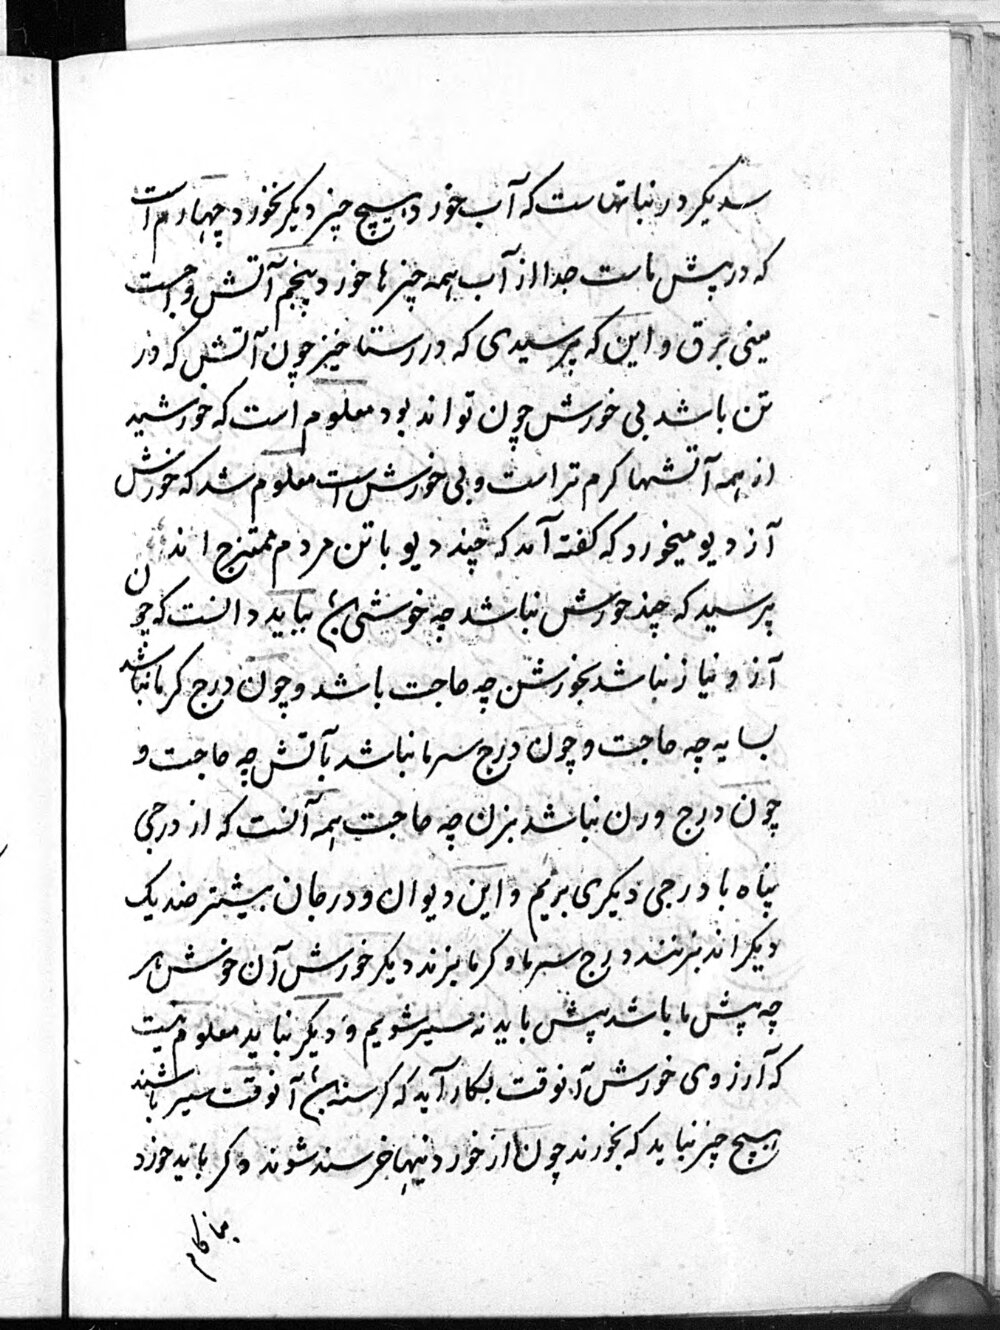 سدیکر در نباتهاست که آب خورد هیچ چیز دیگر نخورد چهارم است
که در پیش ماست جدا از آب همه چیزها خورد پنجم آتش واجست
مینی برق و این که پرسیدی که در رستاخیز چون آتش که در
تن باشد بی خورش چون تواند بود معلوم است که خورشید
از همه آتشها کرم تر است و بی خورش است معلوم شد که خورش
آز دیو میخورد که کفته آمد که چند دیو با تن مردم ممتزج اند
پرسید که چند خورش نباشد چه خوشی بباید دانست که چون
آز و نیاز نباشد بخورشن چه حاجت باشد و چون درج کرما نباشد
بسایه چه حاجت و چون درج سرما نباشد بآتش چه حاجت و
چون درج ورن نباشد بزن چه حاجت همه آنست که از درجی
پناه با درجی دیکری بریم و این دیوان و درجان بیشتر ضد یک
دیکر اند بزنند درج سرما و کرما بزند دیکر خورش آن خوش هر
چه پیش ما باشد پیش باید نه سیر شویم و دیکر نباید معلوم نیست
که آرزوی خورش آنوقت بکار آید که کرسنه آنوقت سیر باشند
هیچ چیز نباید که بخورند چون از خوردنیها خرسند شوند و کر باید خورد